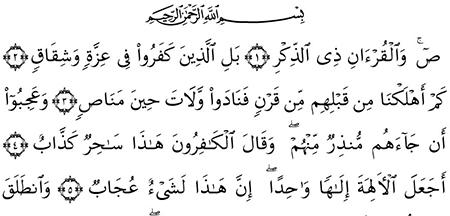 بِسْمِ ٱللَّهِ ٱلرَّحْمَٰنِ ٱلرَّحِيمِ
صٓ ۚ وَٱلْقُرْءَانِ ذِى ٱلذِّكْرِ ﴿١﴾ بَلِ ٱلَّذِينَ كَفَرُوا۟ فِى عِزَّةٍ وَشِقَاقٍ ﴿٢﴾
كَمْ أَهْلَكْنَا مِن قَبْلِهِم مِّن قَرْنٍ فَنَادَوا۟ وَّلَاتَ حِينَ مَنَاصٍ ﴿٣﴾ وَعَجِبُوٓا۟
أَن جَآءَهُم مُّنذِرٌ مِّنْهُمْ ۖ وَقَالَ ٱلْكَٰفِرُونَ هَٰذَا سَٰحِرٌ كَذَّابٌ ﴿٤﴾
أَجَعَلَ ٱلْءَالِهَةَ إِلَٰهًا وَٰحِدًا ۖ إِنَّ هَٰذَا لَشَىْءٌ عُجَابٌ ﴿٥﴾ وَٱنطَلَقَ